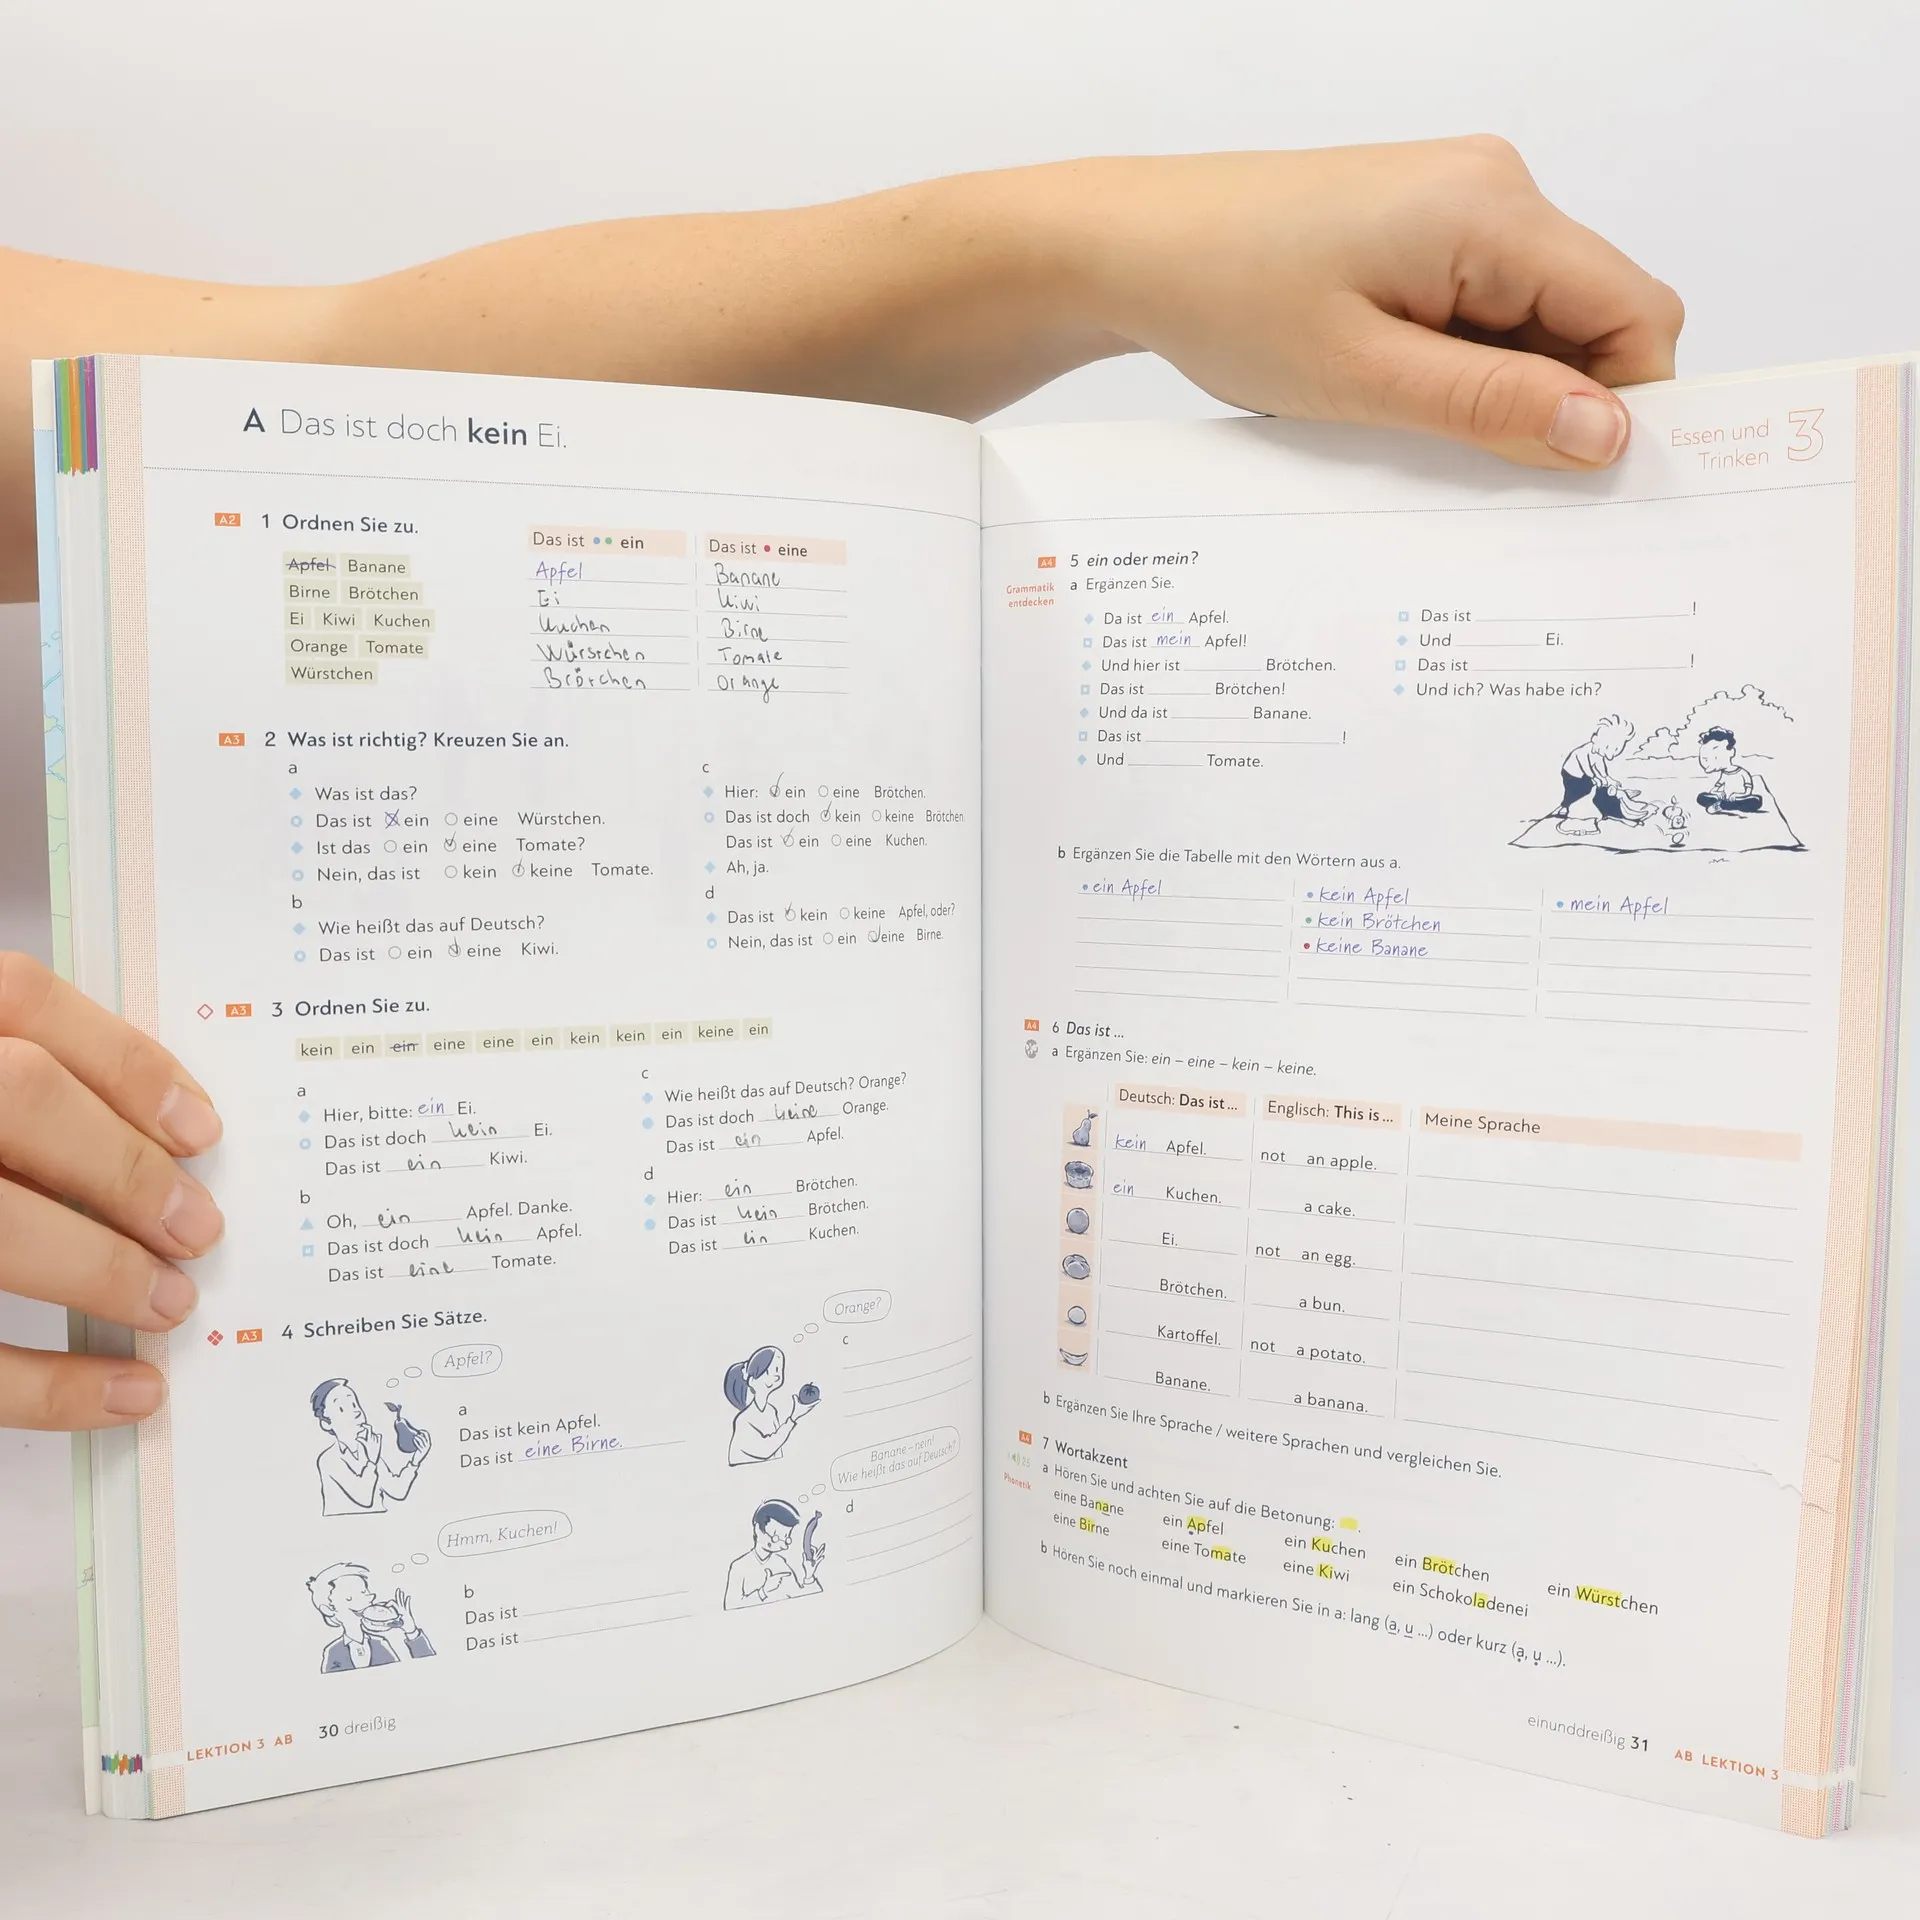 A Das ist doch kein Ei.
A2 1 Ordnen Sie zu.
Apfel Banane
Birne Brötchen
Ei Kiwi Kuchen
Orange Tomate
Würstchen
Das ist ein Das ist eine
Apfel Banane
Ei Kiwi
Kuchen Birne
Würstchen Tomate
Brötchen Orange
A3 2 Was ist richtig? Kreuzen Sie an.
a
Was ist das?
Das ist ein eine Würstchen.
Ist das ein eine Tomate?
Nein, das ist kein keine Tomate.
b
Wie heißt das auf Deutsch?
Das ist ein eine Kiwi.
c
Hier: ein eine Brötchen.
Das ist doch kein keine Brötchen.
Das ist ein eine Kuchen.
Ah, ja.
d
Das ist kein keine Apfel, oder?
Nein, das ist ein eine Birne.
A3 3 Ordnen Sie zu.
kein ein ein eine eine ein kein kein ein keine ein
a
Hier, bitte: ein Ei.
Das ist doch kein Ei.
Das ist ein Kiwi.
b
Oh, ein Apfel. Danke.
Das ist doch kein Apfel.
Das ist eine Tomate.
c
Wie heißt das auf Deutsch? Orange?
Das ist doch keine Orange.
Das ist ein Apfel.
d
Hier: ein Brötchen.
Das ist kein Brötchen.
Das ist ein Kuchen.
A3 4 Schreiben Sie Sätze.
Apfel?
a
Das ist kein Apfel.
Das ist eine Birne.
Hmm, Kuchen!
b
Das ist
Das ist
Orange?
c
Banane – nein!
Wie heißt das auf Deutsch?
d
LEKTION 3 AB 30 dreißig
Essen und
Trinken 3
A4 5 ein oder mein?
Grammatik
entdecken
a Ergänzen Sie.
Da ist ein Apfel.
Das ist mein Apfel!
Und hier ist Brötchen.
Das ist Brötchen!
Und da ist Banane.
Das ist !
Und Tomate.
Das ist !
Und Ei.
Das ist !
Und ich? Was habe ich?
b Ergänzen Sie die Tabelle mit den Wörtern aus a.
ein Apfel kein Apfel mein Apfel
kein Brötchen
keine Banane
A4 6 Das ist ...
a Ergänzen Sie: ein – eine – kein – keine.
Deutsch: Das ist ... Englisch: This is ... Meine Sprache
kein Apfel. not an apple.
ein Kuchen. a cake.
Ei. not an egg.
Brötchen. a bun.
Kartoffel. not a potato.
Banane. a banana.
b Ergänzen Sie Ihre Sprache / weitere Sprachen und vergleichen Sie.
A4 7 Wortakzent
Phonetik
a Hören Sie und achten Sie auf die Betonung: .
eine Banane ein Apfel ein Kuchen ein Brötchen ein Würstchen
eine Birne eine Tomate eine Kiwi ein Schokoladenei
b Hören Sie noch einmal und markieren Sie in a: lang (a̲, u̲ ...) oder kurz (ạ, ụ ...).
einunddreißig 31 AB LEKTION 3